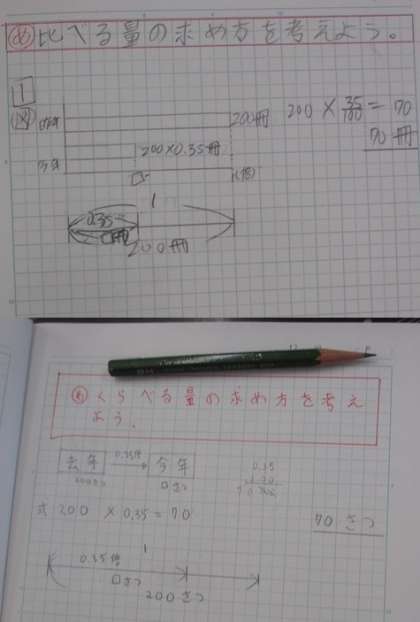 め 比べる量の求め方を考えよう。
1
図
200冊
200 × 35/100 = 70
70冊
200×0.35冊
□
1
0.35
200冊
め くらべる量の求め方を考え
よう。
去年 0.35倍 今年
200さつ □さつ
0.35
式 200 × 0.35 = 70
70 さつ
1
0.35倍
□さつ
200さつ